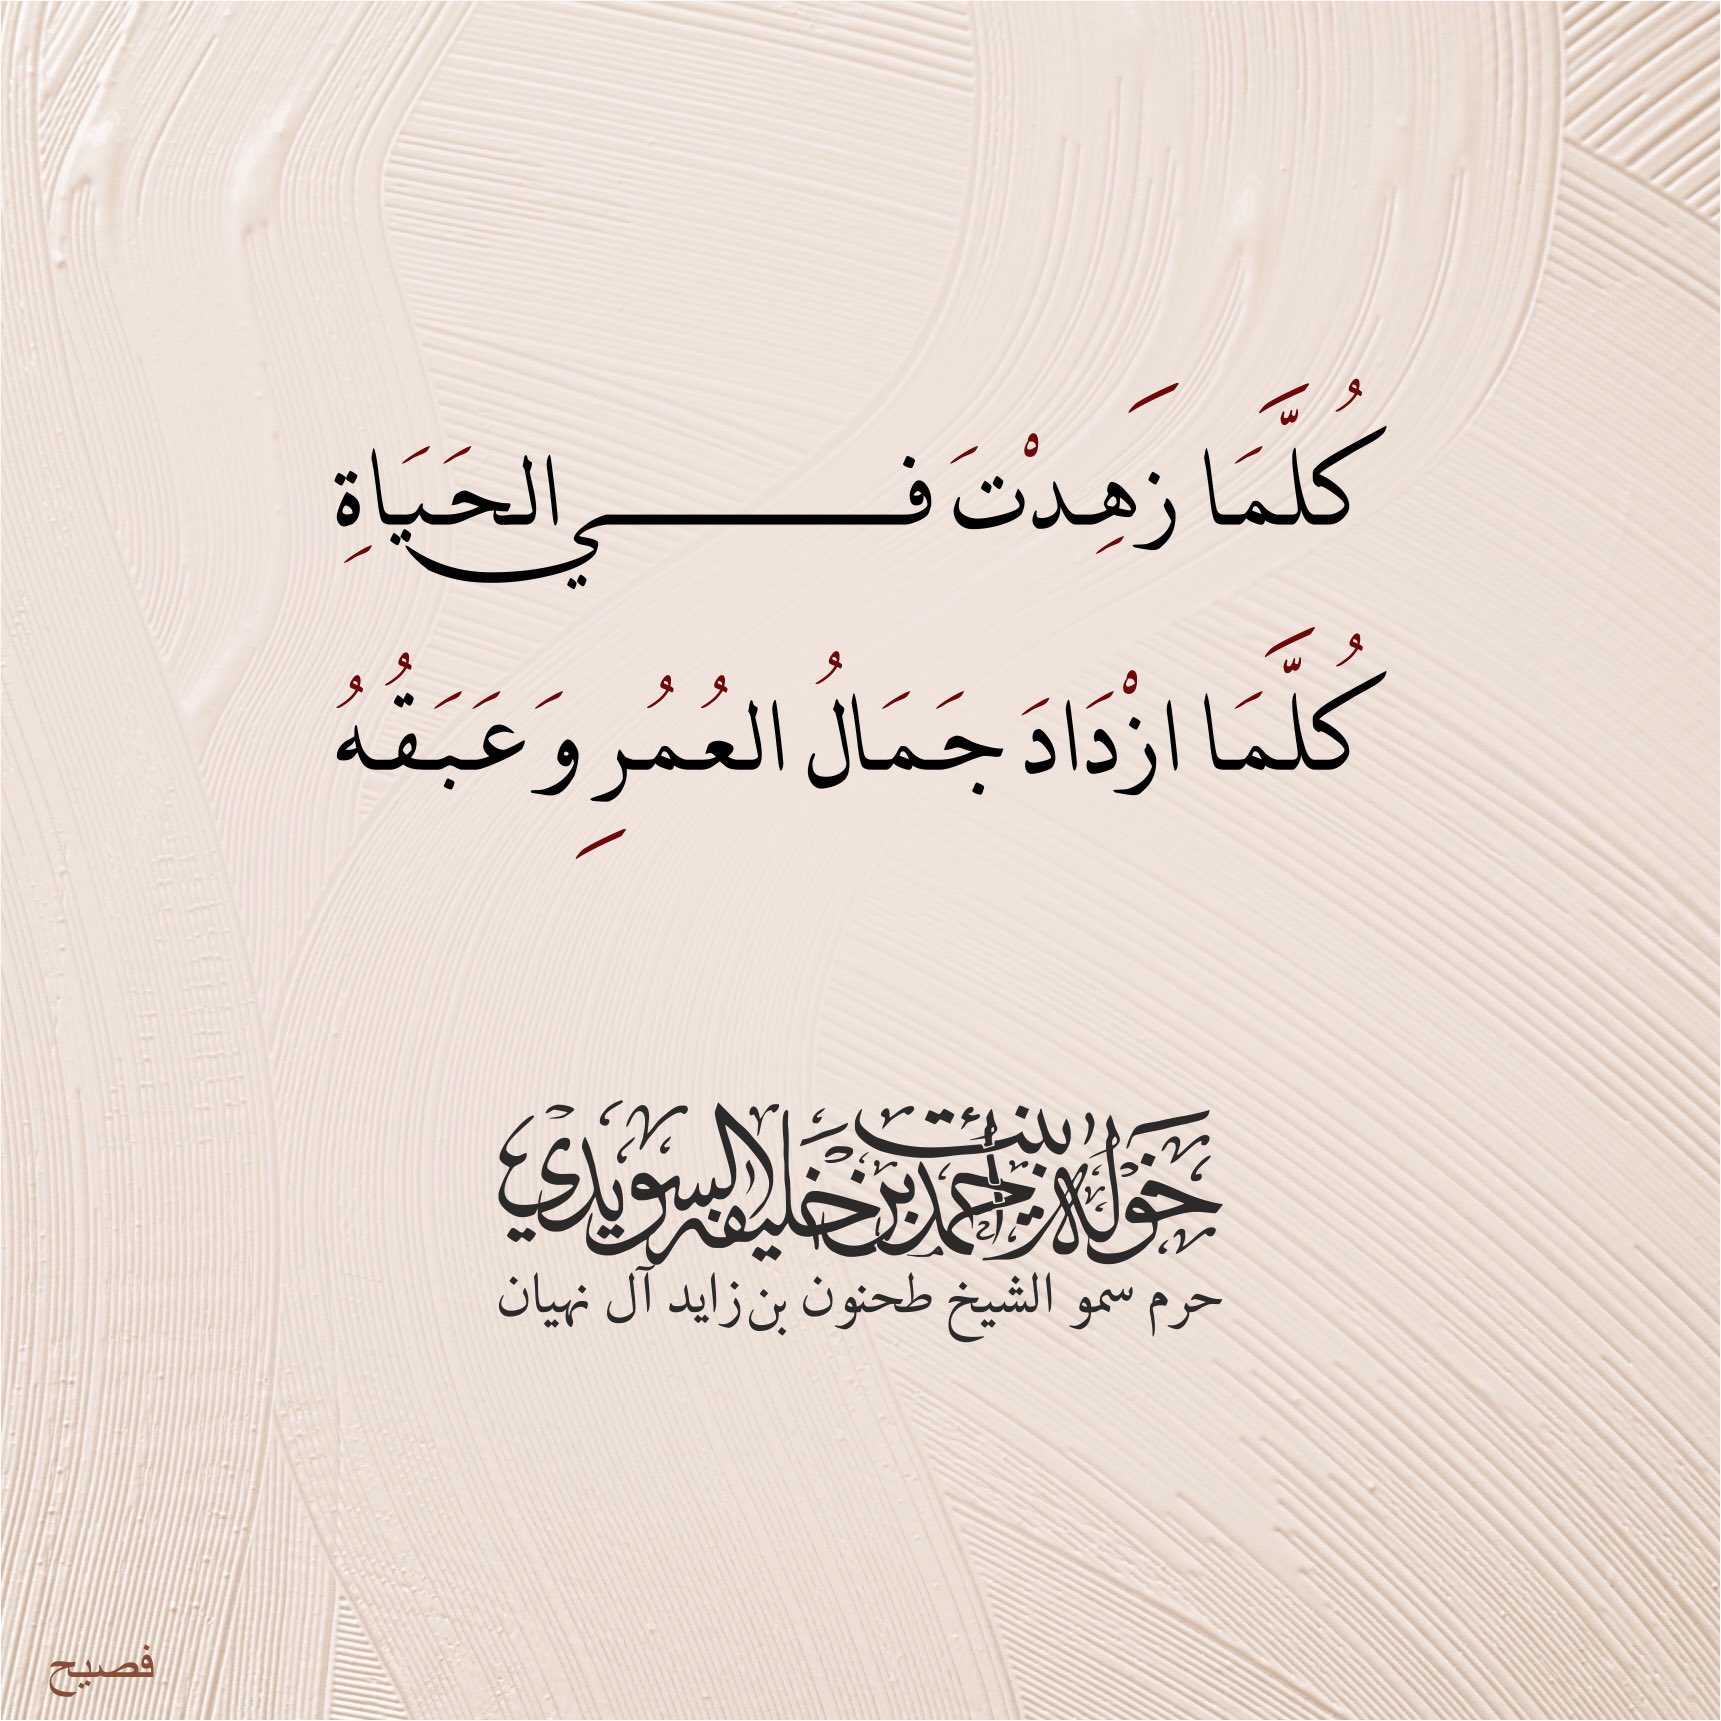 كُلَّمَا زَهِدْتَ فِي الحَيَاةِ
كُلَّمَا ازْدَادَ جَمَالُ العُمُرِ وَعَبَقُهُ
خولة بنت أحمد بن خليفة السويدي
حرم سمو الشيخ طحنون بن زايد آل نهيان
فصيح